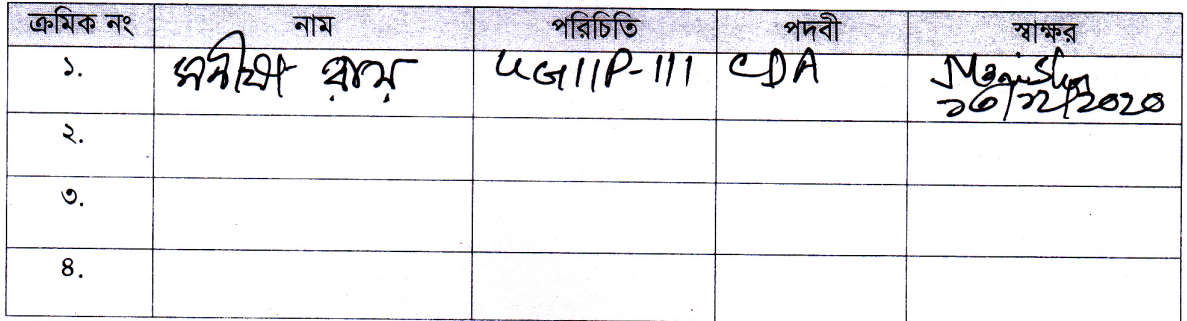 ক্রমিক নং নাম পরিচিতি পদবী স্বাক্ষর
১. মনীষা রায় UGIIP-III CDA Manisha
১৩/১২/2020
২.
৩.
৪.